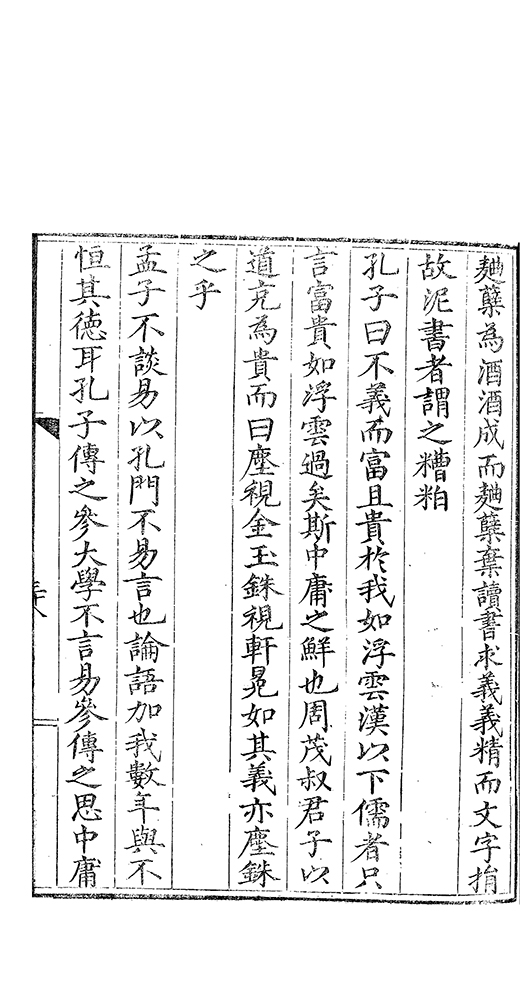 麯糵為酒酒成而麯糵棄讀書求義義精而文字捐
故泥書者謂之糟粕
孔子曰不義而富且貴於我如浮雲漢以下儒者只
言富貴如浮雲過矣斯中庸之鮮也周茂叔君子以
道充為貴而曰塵視金玉銖視軒冕如其義亦塵銖
之乎
孟子不談易以孔門不易言也論語加我數年與不
恒其德耳孔子傳之參大學不言易參傳之思中庸